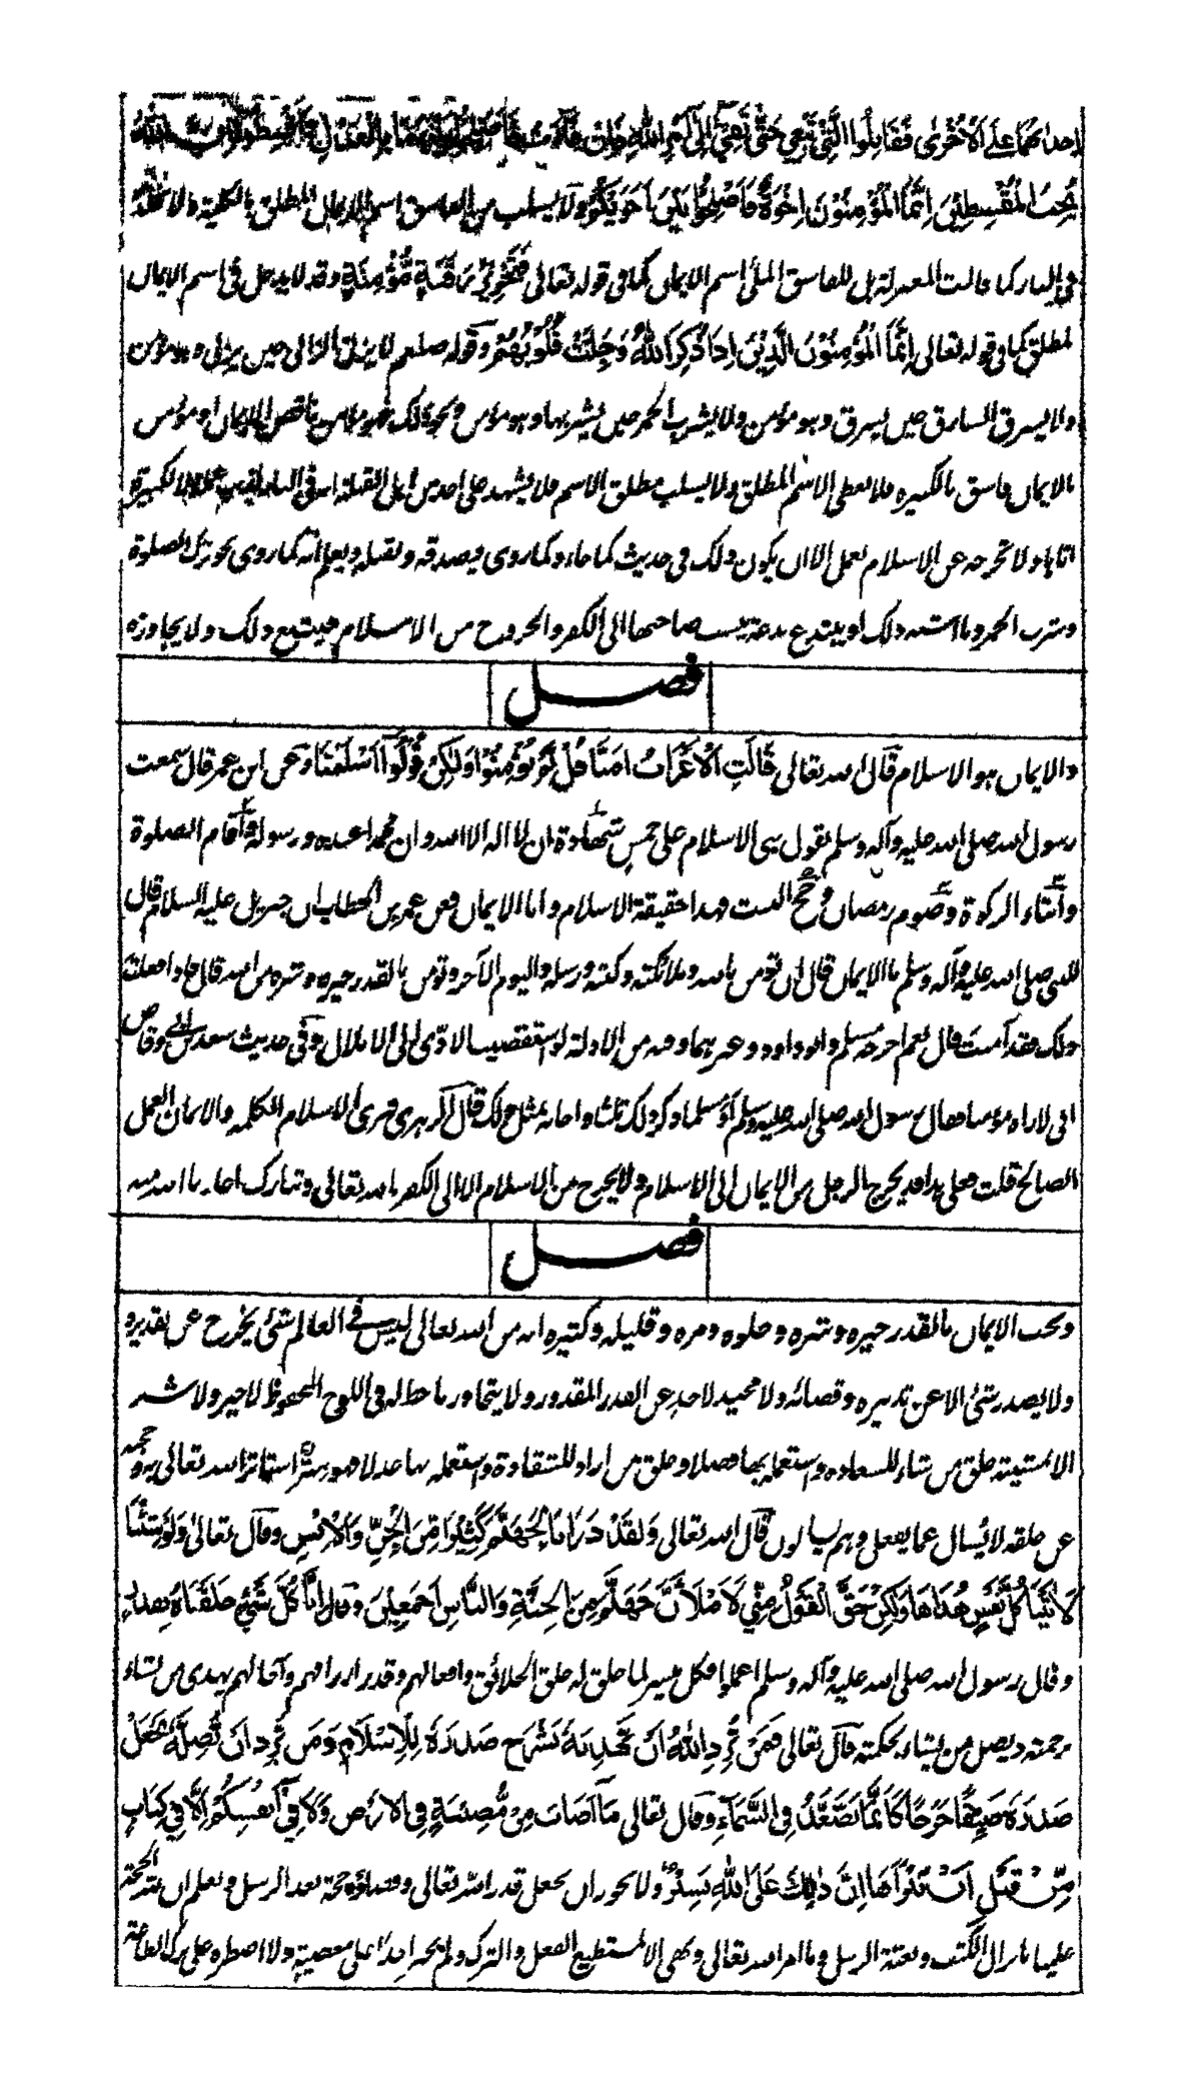 إِحْدَاهُمَا عَلَى الْأُخْرَى فَقَاتِلُوا الَّتِي تَبْغِي حَتَّى تَفِيءَ إِلَى أَمْرِ اللَّهِ فَإِنْ فَاءَتْ فَأَصْلِحُوا بَيْنَهُمَا بِالْعَدْلِ وَأَقْسِطُوا إِنَّ اللَّهَ
يُحِبُّ الْمُقْسِطِينَ إِنَّمَا الْمُؤْمِنُونَ إِخْوَةٌ فَأَصْلِحُوا بَيْنَ أَخَوَيْكُمْ ولا يسلب من الفاسق اسم الايمان المطلق بالكلية ولا تخلده
فى النار كما قالت المعتزلة بل الفاسق الملى اسم الايمان كما فى قوله تعالى فَتَحْرِيرُ رَقَبَةٍ مُّؤْمِنَةٍ وقد لا يدخل فى اسم الايمان
لمطلق كما فى قوله تعالى إِنَّمَا الْمُؤْمِنُونَ الَّذِينَ إِذَا ذُكِرَ اللَّهُ وَجِلَتْ قُلُوبُهُمْ وقوله صلعم لا يزنى الزانى حين يزنى وهو مؤمن
ولا يسرق السارق حين يسرق وهو مؤمن ولا يشرب الخمر حين يشربها وهو مؤمن ونحو ذلك فهو مؤمن ناقص الايمان او مؤمن
بالايمان فاسق بالكبيره فلا يعطى الاسم المطلق ولا يسلب مطلق الاسم فلا يشهد على احد من اهل القبلة انه فى النار لذنب عمله ولا لكبيرة
اتاها ولا تخرجه عن الاسلام بعمل الا ان يكون ذلك فى حديث كما جاء وكما روى فيصدقه ونقبله ويعلم انه كما روى نحو ترك الصلوة
وشرب الخمر وما اشبه ذلك او يبتدع بدعة ينسب صاحبها الى الكفر والخروج من الاسلام فيتبع ذلك ولا يجاوزه
فصل
والايمان هو الاسلام قال الله تعالى قَالَتِ الْأَعْرَابُ آمَنَّا قُلْ لَمْ تُؤْمِنُوا وَلَكِنْ قُولُوا أَسْلَمْنَا وعن ابن عمر قال سمعت
رسول الله صلى الله عليه وآله وسلم يقول بنى الاسلام على خمس شهادة ان لا اله الا الله وان محمدا عبده ورسوله واقام الصلوة
وايتاء الزكوة وصوم رمضان وحج البيت فهذا حقيقة الاسلام واما الايمان فعن عمر بن الخطاب ان جبريل عليه السلام قال
للنبى صلى الله عليه وآله وسلم ما الايمان قال ان تؤمن بالله وملائكته وكتبه ورسله واليوم الآخر وتؤمن بالقدر خيره وشره من الله قال فاذا فعلت
ذلك فقد آمنت قال نعم اخرجه مسلم وابو داود وغيرهما وفيه من الادلة لو استقصيت لادى الى الاملال وفى حديث سعد بن ابى وقاص
انى لاراه مؤمنا فقال رسول الله صلى الله عليه وسلم او مسلما وذكر ذلك ثلثا واجابه بمثل ذلك قال الزهرى فنرى الاسلام الكلمه والايمان العمل
الصالح قلت فعلى هذا قد يخرج الرجل من الايمان الى الاسلام ولا يخرج من الاسلام الا الى الكفر بالله تعالى وتبارك اعاذنا الله منه
فصل
ويجب الايمان بالقدر خيره وشره وحلوه ومره وقليله وكثيره انه من الله تعالى ليس فى العالم شئ يخرج عن تقديره
ولا يصدر شئ الا عن تدبيره وقضائه ولا محيد لاحد عن القدر المقدور ولا يتجاوز ما خط له فى اللوح المحفوظ لا خير ولا شر
الا بمشيته خلق من شاء للسعاده واستعمله بها فضلا وخلق من اراد للشقاوة واستعمله بها عدلا فهو سر استاثر الله تعالى به وحجبه
عن خلقه لا يُسال عما يفعل وهم يسالون قال الله تعالى وَلَقَدْ ذَرَأْنَا لِجَهَنَّمَ كَثِيرًا مِّنَ الْجِنِّ وَالْإِنْسِ وقال تعالى وَلَوْ شِئْنَا
لَآتَيْنَا كُلَّ نَفْسٍ هُدَاهَا وَلَكِنْ حَقَّ الْقَوْلُ مِنِّي لَأَمْلَأَنَّ جَهَنَّمَ مِنَ الْجِنَّةِ وَالنَّاسِ أَجْمَعِينَ وقال إِنَّا كُلَّ شَيْءٍ خَلَقْنَاهُ بِقَدَرٍ
وقال رسول الله صلى الله عليه وآله وسلم اعملوا فكل ميسر لما خلق له خلق الخلائق وافعالهم وقدر ارزاقهم وآجالهم يهدى من يشاء
برحمته ويضل من يشاء بحكمته قال تعالى فَمَنْ يُرِدِ اللَّهُ أَنْ يَهْدِيَهُ يَشْرَحْ صَدْرَهُ لِلْإِسْلَامِ وَمَنْ يُرِدْ أَنْ يُضِلَّهُ يَجْعَلْ
صَدْرَهُ ضَيِّقًا حَرَجًا كَأَنَّمَا يَصَّعَّدُ فِي السَّمَاءِ وقال تعالى مَا أَصَابَ مِنْ مُّصِيبَةٍ فِي الْأَرْضِ وَلَا فِي أَنْفُسِكُمْ إِلَّا فِي كِتَابٍ
مِّنْ قَبْلِ أَنْ نَبْرَأَهَا إِنَّ ذَلِكَ عَلَى اللَّهِ يَسِيرٌ ولا يجوز ان يجعل قدر الله تعالى وقضاؤه حجة بعد الرسل ونعلم ان لله الحجة
علينا بانزال الكتب وبعثة الرسل وما امر الله تعالى ونهى الا المستطيع الفعل والترك ولم يجبر احدا على معصية ولا اضطره على ترك الطاعة